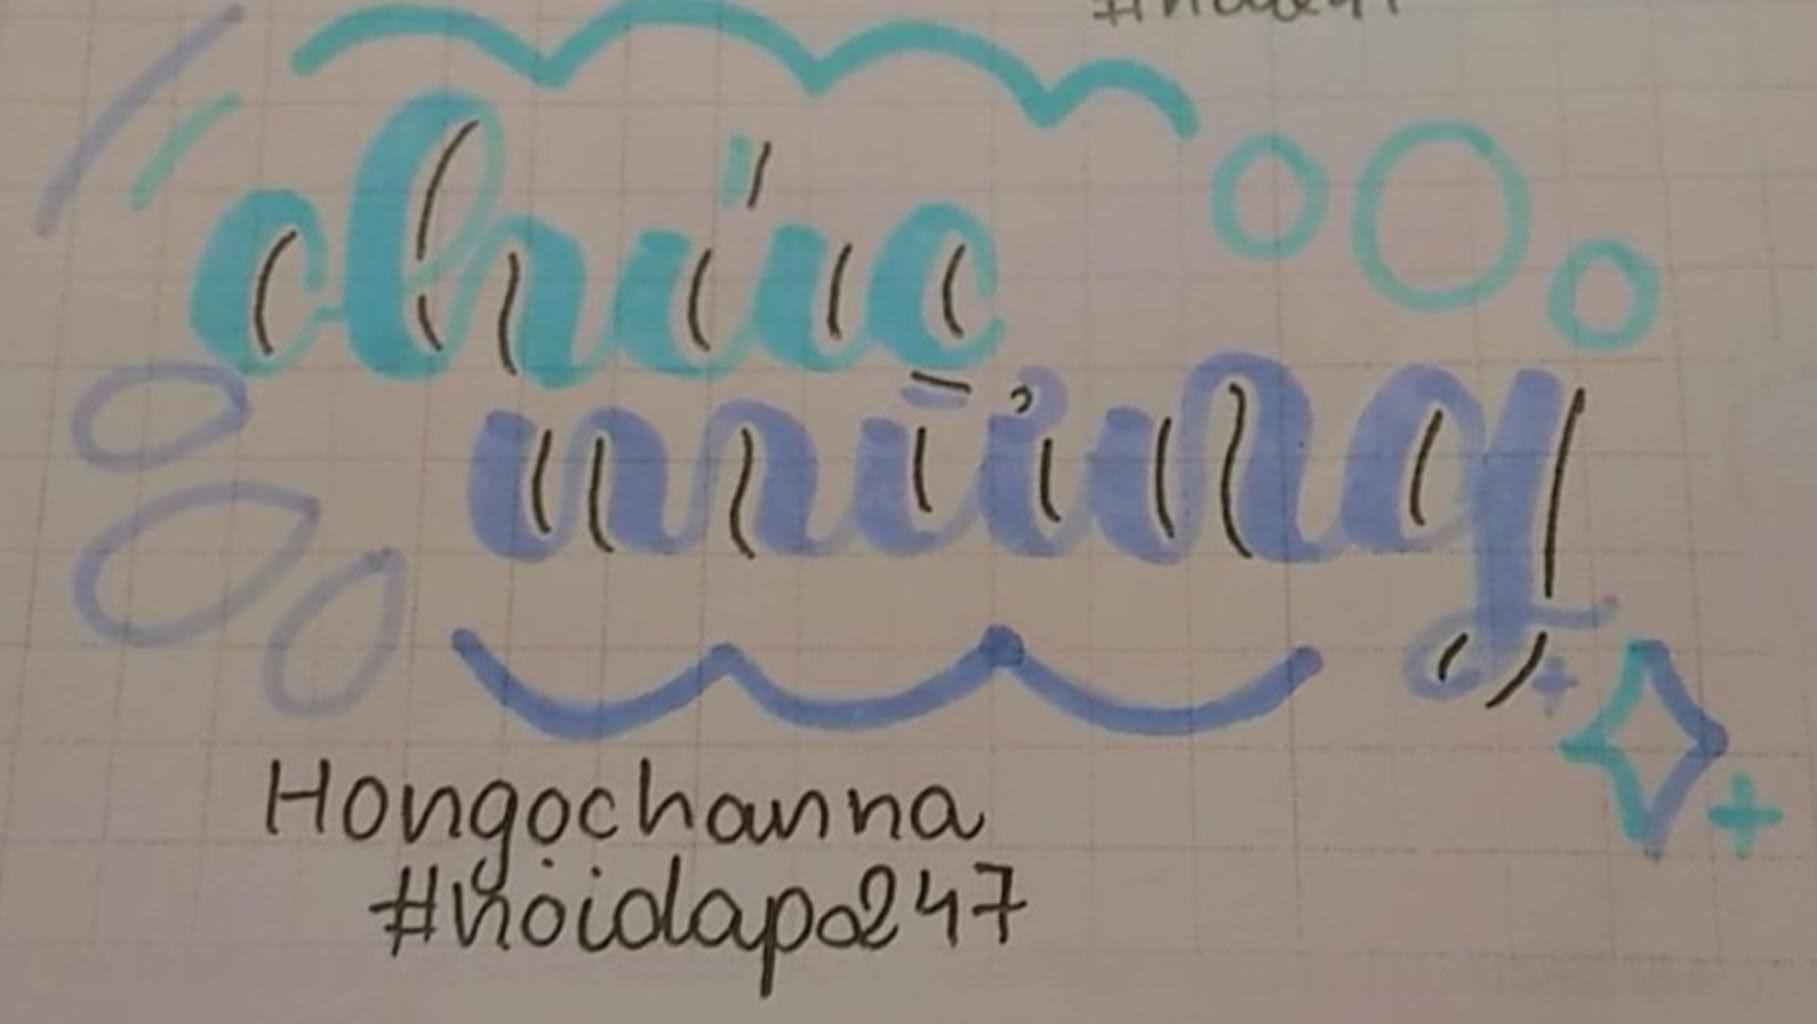 chúc
mừng
Hongochanna
#hoidap247